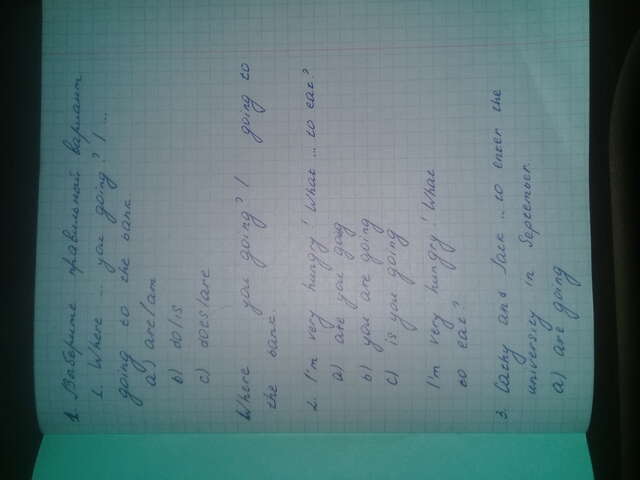 1. Выберите правильный вариант
1. Where ... you going? I ...
going to the bank.
a) are/am
b) do/is
c) does/are
Where you going? I going to
the bank.
2. I'm very hungry! What ... to eat?
a) are you going
b) you are going
c) is you going
I'm very hungry! What
to eat?
3. Cathy and Jack ... to enter the
university in September.
a) are going